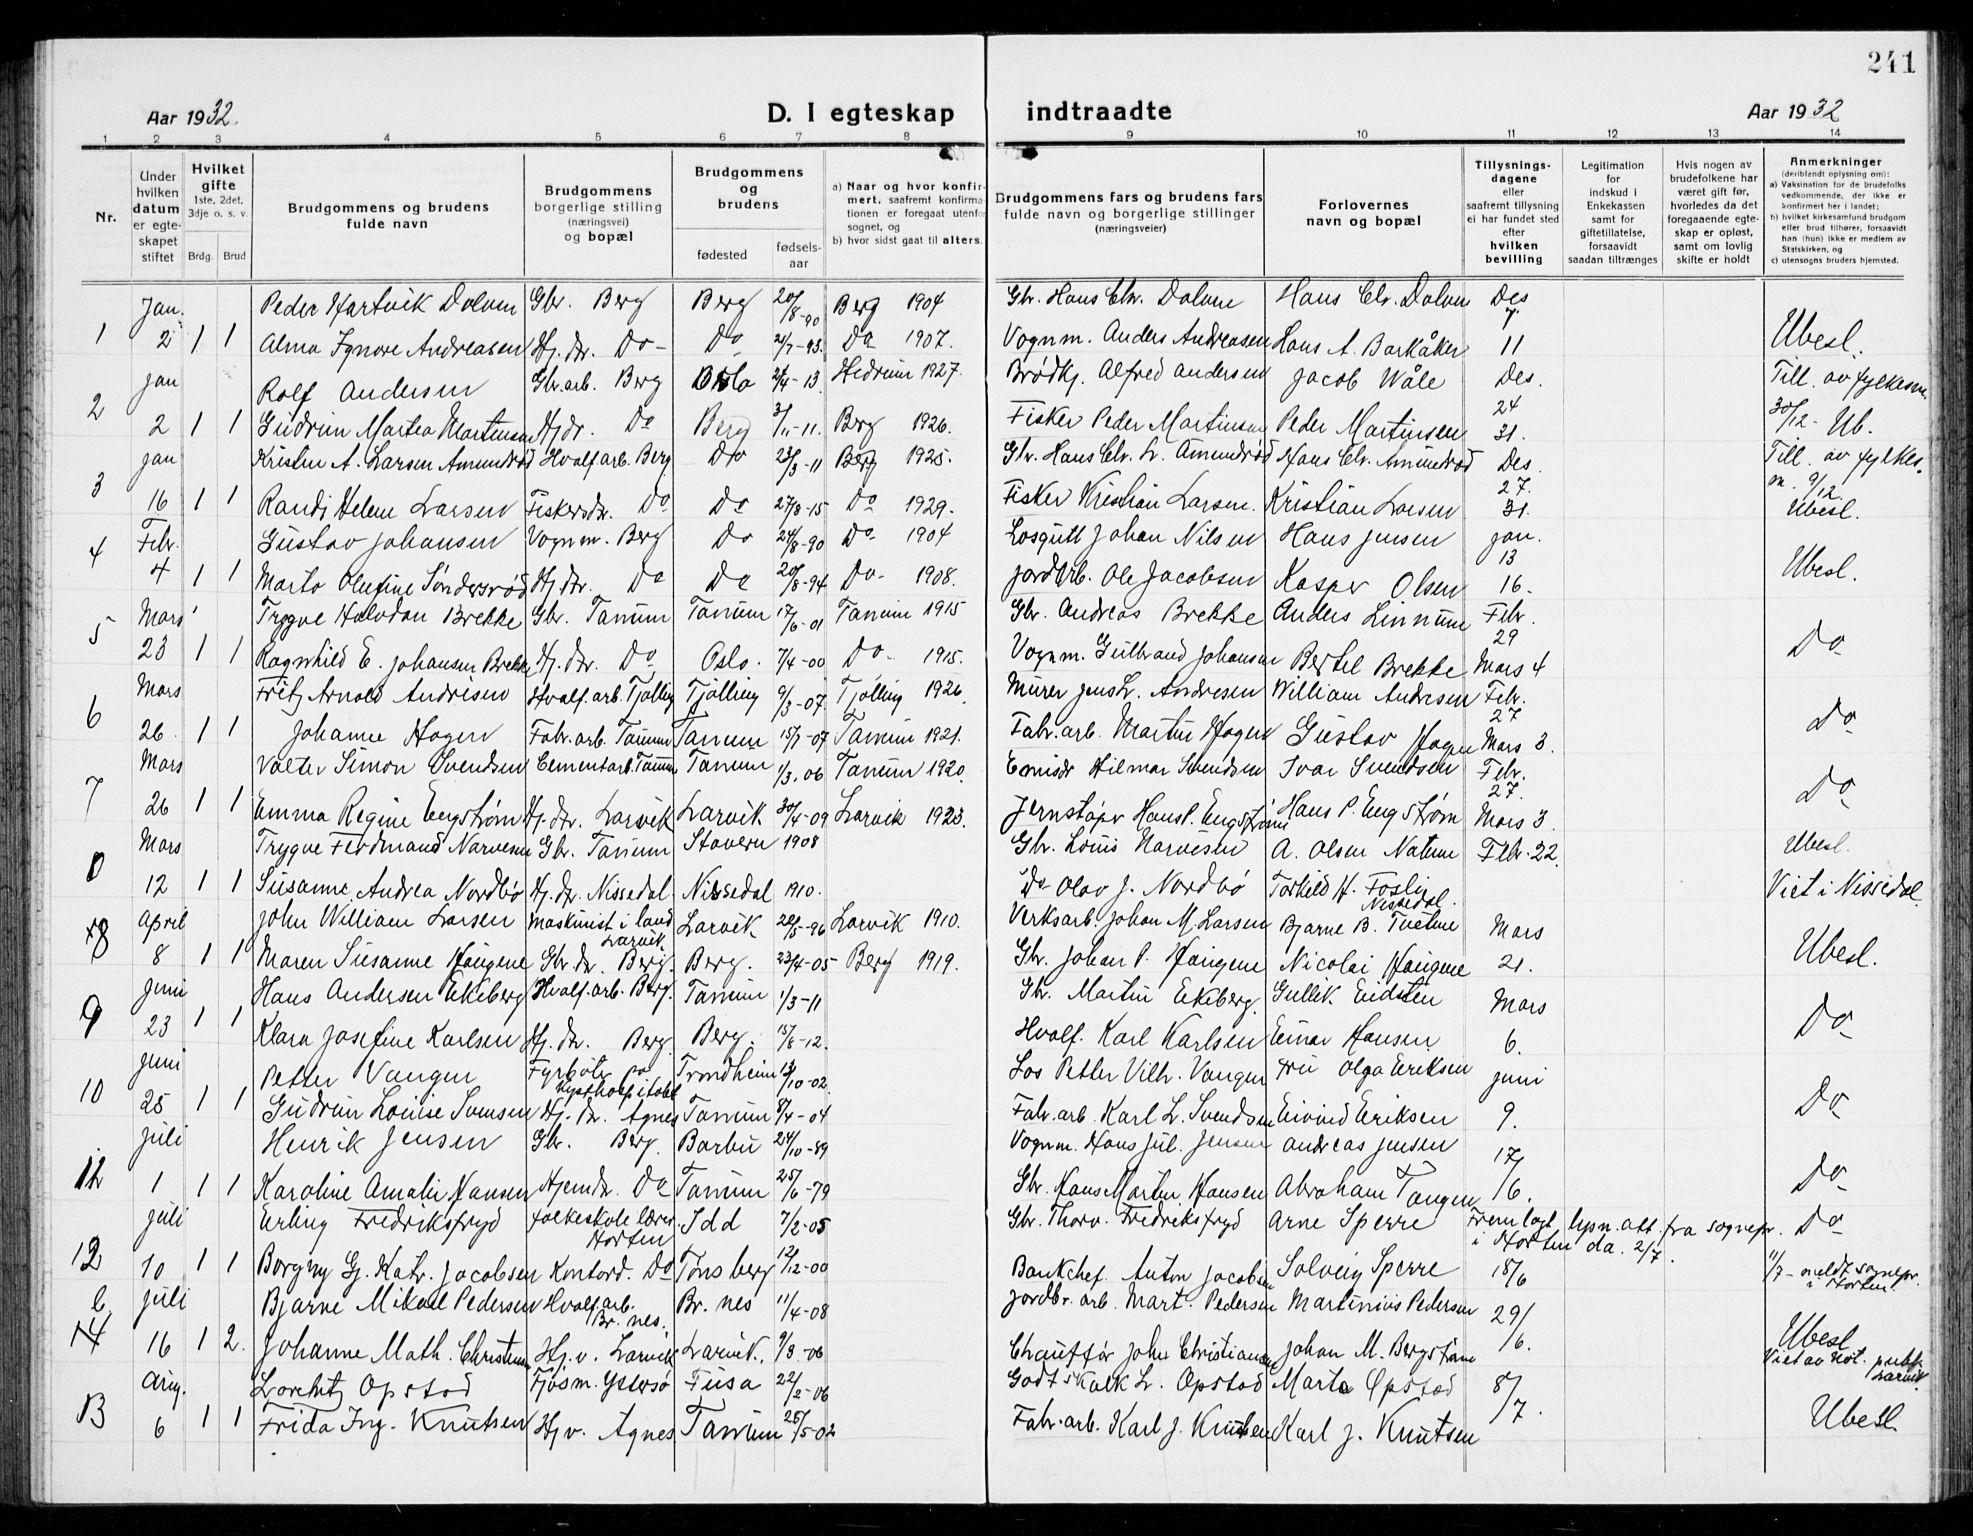 241
Aar 1932.
D. I egteskap indtraadte
Aar 1932
1 2 3 4 5 6 7 8 9 10 11 12 13 14
Nr.
Under hvilken datum er egteskapet stiftet
Hvilket gifte 1ste, 2det, 3dje o. s. v.
Brdg. Brud
Brudgommens og brudens fulde navn
Brudgommens borgerlige stilling (næringsvei) og bopæl
Brudgommens og brudens
fødested
fødselsaar
a) Naar og hvor konfirmert, saafremt konfirmationen er foregaat utenfor sognet, og
b) hvor sidst gaat til alters.
Brudgommens fars og brudens fars fulde navn og borgerlige stillinger (næringsveier)
Forlovernes navn og bopæl
Tillysningsdagene eller saafremt tillysning ei har fundet sted efter hvilken bevilling
Legitimation for indskud i Enkekassen samt for giftetillatelse, forsaavidt saadan tiltrænges
Hvis nogen av brudefolkene har været gift før, hvorledes da det foregaaende egteskap er opløst, samt om lovlig skifte er holdt
Anmerkninger (deriblandt oplysning om):
a) Vaksination for de brudefolks vedkommende, der ikke er konfirmert her i landet;
b) hvilket kirkesamfund brudgom eller brud tilhører, forsaavidt han (hun) ikke er medlem av Statskirken, og
c) utensogns bruders hjemsted.
Jan. Peder Hartvik Dolven Gbr. Berg Berg 20/8-90 Berg 1904 Gbr. Hans Chr. Dolven Hans Chr. Dolven Des 7
1 2 1 1 Alma Ignore Andreasen Hj. dr. Do Do 21/7-93. Do 1907. Vognm. Anders Andreasen Hans A. Barkåker 11 Ubesl.
Jan Rolf Andersen Gbr.arb. Berg Oslo 21/4-13 Hedrum 1927. Brødkj. Alfred Andersen Jacob Wåle Des. 24 Till. av fylkesm.
2 2 1 1 Gudrun Martea Martinsen Hjdr. Do Berg 3/11-11. Berg 1926. Fisker Peder Martinsen Peder Martinsen 31. 30/12- Ub.
Jan Kristen A. Larsen Amundrød Hvalf.arb. Berg Do 23/3-11 Berg 1925. Gbr. Hans Chr. L. Amundrød Hans Chr. Amundrød Des. 27. Till. av fylkesm. 9/12.
3 16 1 1 Randi Helene Larsen Fiskersdr. Do Do 27/8-15 Do 1929. Fisker Kristian Larsen. Kristian Larsen 31. Ubesl.
Febr. Gustav Johansen Vognm. Berg Do 24/8-90 Do 1904 Losgutt Johan Nilsen Hans Jensen Jan. 13
4 4 1 1 Marta Olufine Søndersrød Hj.dr. Do Do 20/8-94 Do 1908. Jordbr. Ole Jacobsen Kasper Olsen 16. Ubesl.
Mars Trygve Halvdan Brekke Gbr. Tanum Tanum 17/6-01 Tanum 1915 Gbr. Andreas Brekke Anders Linnum Febr. 29
5 23 1 1 Ragnhild E. Johansen Brekke Hj. dr. Do Oslo. 7/4-00 Do 1915. Vognm. Gulbrand Johansen Bertel Brekke Mars 4 Do
Mars Fritz Arnold Andresen Hvalf.arb. Tjølling Tjølling 9/3-07 Tjølling 1926. Murer Jens L. Andresen William Andresen Febr. 27
6 26. 1 1 Johanne Hagen Fabr.arb. Tanum Tanum 15/7-07 Tanum 1921. Fabr.arb. Martin Hagen Gustav Hagen Mars 3. Do
Mars Valter Simon Svendsen Cementarb. Tanum Tanum 1/3.06 Tanum 1920. Emissær Hilmar Svendsen Ivar Svendsen Febr. 27.
7 26 1 1 Emma Regine Engstrøm Hj. dr. Larvik Larvik 30/4-09 Larvik 1923. Jernstøper Hans P. Engstrøm Hans P. Engstrøm Mars 3. Do
Mars Trygve Ferdinand Narvesen Gbr. Tanum Stavern 1908 Gbr. Louis Narvesen A. Olsen Nalum Febr. 22. Ubesl.
0 12 1 1 Susanne Andrea Nordbø Hj. dr. Nissedal Nissedal 1910. Do Olav J. Nordbø Torhild H. Foslie Nissedal. Viet i Nissedal
April John William Larsen Maskinist i land Larvik Larvik 20/5-96 Larvik 1910. Verksarb. Johan M. Larsen Bjarne B. Tvetene Mars
8 8 1 1 Maren Susanne Haugene Gbr.dr. Berg Berg. 23/4-05 Berg 1919. Gbr. Johan P. Haugene Nicolai Haugene 21. Ubesl.
Juni Hans Andersen Ekeberg Hvalf.arb. Berg. Tanum 1/3-11 Gbr. Martin Ekeberg. Gullik Eidsten Mars
9 23 1 1 Klara Josefine Karlsen Hj. dr. Berg Berg. 15/8-12. Hvalf. Karl Karlsen Einar Hansen 6. Do
Juni Petter Vangen Fyrbøter på Kysthospitalet Trondheim 13/10-02. Los Petter Vilh. Vangen Fru Olga Eriksen Juni
10 25 1 1 Gudrun Louise Svensen Hj. dr. Agnes Tanum 8/4-04 Fabr.arb. Karl L. Svendsen Eivind Eriksen 9. Do
Juli Henrik Jensen Gbr. Berg. Barbu 24/10-89 Vognm. Hans Jul. Jensen Andreas Jensen 17/6.
11 1 1 1 Karoline Amalie Hansen Hjemdr. Do Tanum 25/6-79 Gbr. Hans Martin Hansen Abraham Tangen Do
Juli Erling Fredriksfryd Folkeskolelærer Horten Idd 7/2-05 Gbr. Thorv. Fredriksfryd Arne Sperre Fremlagt lysn. att fra sognepr. i Horten da. 2/7. Do
12 10 1 1 Borgny Gj. Katr. Jacobsen Kontord. Do Tønsberg 12/12-00 Bankchef. Anton Jacobsen Solveig Sperre 18/6 11/7 - meldt sognepr. i Horten.
Juli Bjarne Mikael Pedersen Hvalf.arb. Br. nes. Br. nes 11/4-08 Jordbr. arb. Mart. Pedersen Martinius Pedersen 29/6.
16 1 2. Johanne Math. Christensen Hj.v. Larvik Larvik. 9/8-06 Chauffør John Christiansen Johan M. Bergstrøm Ubesl Viet av Not. publ. Larvik
Aug. Lorentz Opstad Fjøsm. Ystersø Fusa 22/2-06 Godt skalk L. Opstad Marta Opstad 8/7.
13 6 1 1 Frida Ing. Knutsen Hj v. Agnes Tanum 25/5-02 Fabr.arb. Karl J. Knutsen Karl J. Knutsen Ubesl